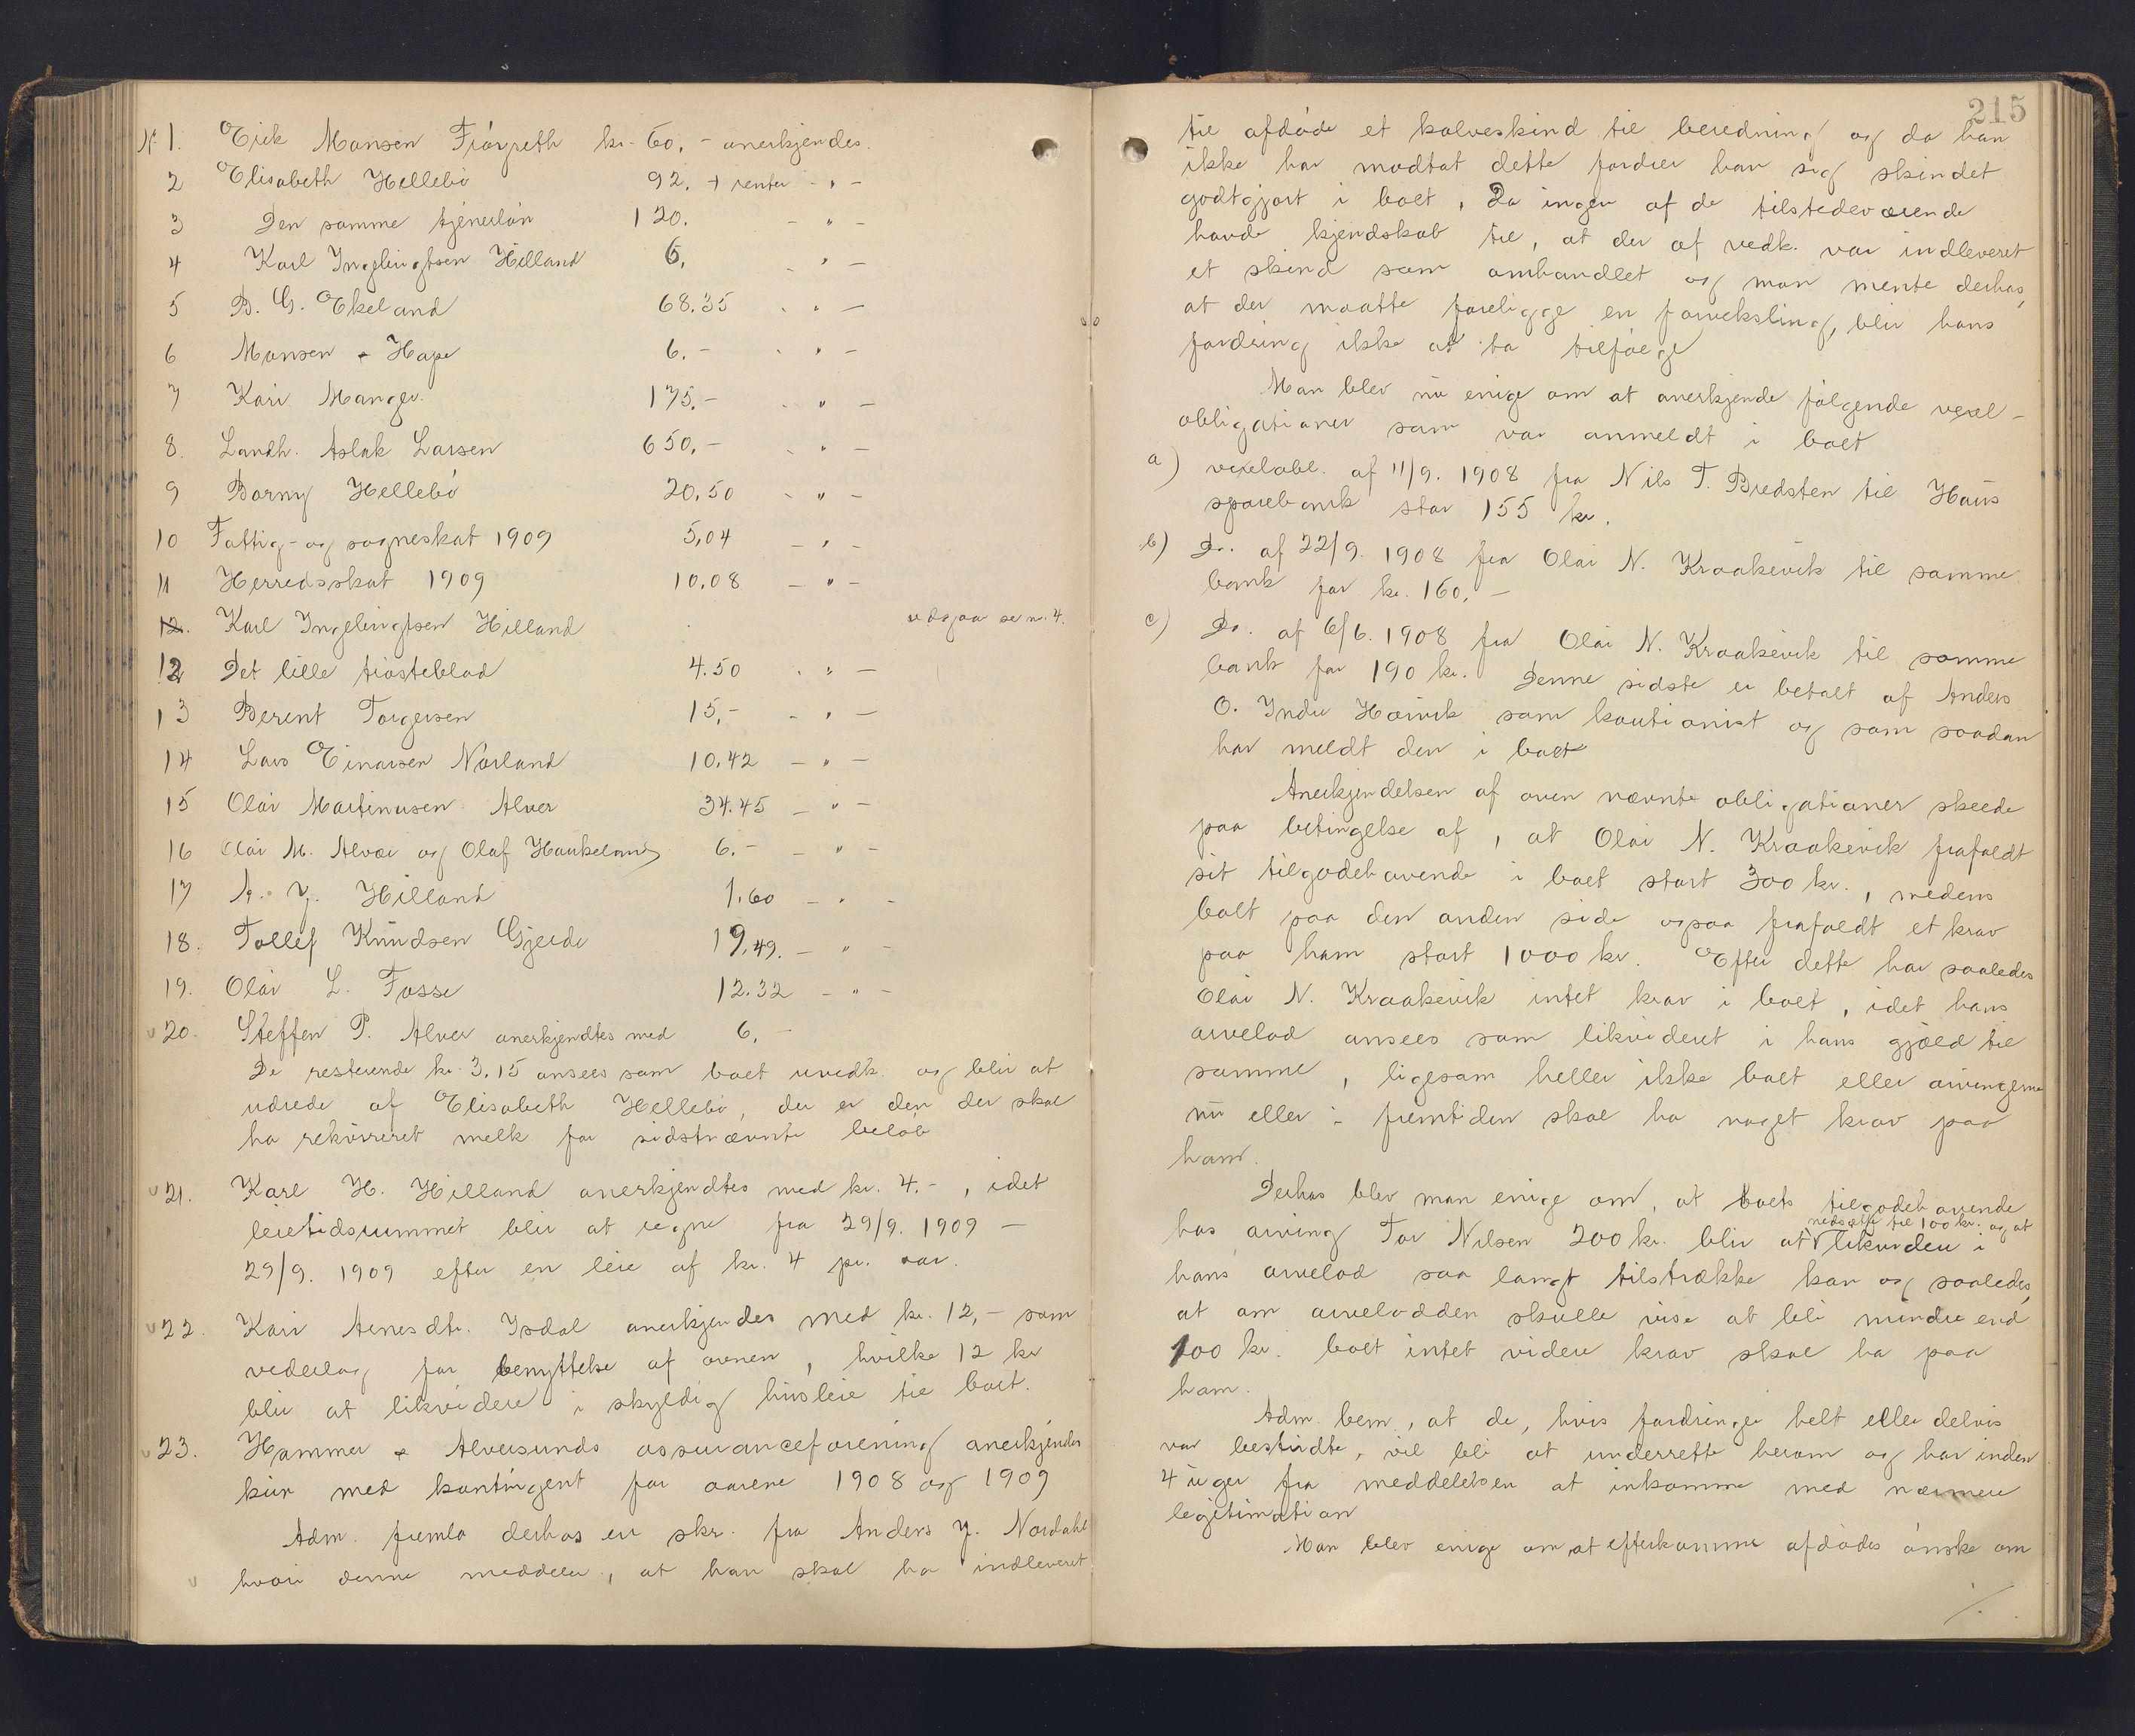 N. 1. Erik Monsen Frørpeth kr. 60,- anerkjendes.
2 Elisabeth Hellebø 92. + renter - " -
3 Den samme tjenerløn 120. - " -
4 Karl Ingebrigtsen Hilland 6, - " -
5 B. G. Ekeland 68.35 - " -
6 Monsen & Hope 6.- - " -
7 Kari Manger. 175.- - " -
8. Landh. Aslak Larsen 650,- - " -
9 Borny Hellebø 20,50 - " -
10 Fattig- og sogneskat 1909 5,04 - " -
11 Herredsskat 1909 10.08 - " -
12. Karl Ingebrigtsen Hilland udgaar se n. 4.
12 Det lille trøsteblad 4.50 - " -
13 Berent Torgersen 15,- - " -
14 Lars Einarsen Norland 10.42 - " -
15 Olai Martinusen Alver 34.45 - " -
16 Olai M. Alver og Olaf Haukeland 6.- - " -
17 A. Y. Hilland 1.60 - " -
18. Tollef Knudsen Gjerde 19,49. - " -
19. Olai L. Fosse 12.32 - " -
20. Steffen P. Alver anerkjendtes med 6,-
De resterende kr. 3.15 ansees som boet uvedk. og blir at
udrede af Elisabeth Hellebø, der er den der skal
ha rekvireret melk for sidstnævnte beløb
21. Karl H. Hilland anerkjendtes med kr. 4.-, idet
leietidsrummet blir at regne fra 29/9. 1909 -
29/9. 1909 efter en leie af kr. 4 pr. aar.
22. Kari Arnesdtr. Isdal anerkjendes med kr. 12,- som
vederlag for benyttelse af ovnen, hvilke 12 kr
blir at likvidere i skyldig husleie til boet.
23. Hammer & Alversunds assuranceforening anerkjendes
kun med kontingent for aarene 1908 og 1909
Adm. fremla derhos en skr. fra Anders Y. Nordahl
hvori denne meddeler, at han skal ha indleveret
215
til afdøde et kalveskind til beredning og da han
ikke har modtat dette fordrer han sig skindet
godtgjort i boet, Da ingen af de tilstedeværende
havde kjendskab til, at der af vedk. var indleveret
et skind som omhandlet og man mente derhos,
at der maatte foreligge en forveksling, blir hans
fordring ikke at ta tilfølge
Man blev nu enige om at anerkjende følgende vexel-
obligationer som var anmeldt i boet
a) vexelobl. af 11/9. 1908 fra Nils T. Bredsten til Haus
sparebank stor 155 kr.
b) Do. af 22/9. 1908 fra Olai N. Kraakevik til samme
bank for kr. 160,-
c) Do. af 6/6. 1908 fra Olai N. Kraakevik til samme
bank for 190 kr. Denne sidste er betalt af Anders
O. Indre Høivik som kautionist og som saadan
har meldt den i boet
Anerkjendelsen af oven nævnte obligationer skeede
paa betingelse af, at Olai N. Kraakevik frafaldt
sit tilgodehavende i boet stort 300 kr., medens
boet paa den anden side ogsaa frafaldt et krav
paa ham stort 1000 kr. Efter dette har saaledes
Olai N. Kraakevik intet krav i boet, idet hans
arvelod ansees som likvideret i hans gjæld til
samme, ligesom heller ikke boet eller arvingerne
nu eller i fremtiden skal ha noget krav paa
ham.
Derhos blev man enige om, at boets tilgodehavende
nedsætte til 100 kr. og at
hos arving Tor Nilsen 200 kr. blir at likvidere i
hans arvelod saa langt tilstrække kan og saaledes,
at om arvelodden skulle vise at bli mindre end
100 kr. boet intet videre krav skal ha paa
ham.
Adm. bem., at de, hvis fordringer helt eller delvis
var bestridte, vil bli at underrette herom og har inden
4 uger fra meddelelsen at inkomme med nærmere
legitimation
Man blev enige om at efterkomme afdødes ønske om
./.